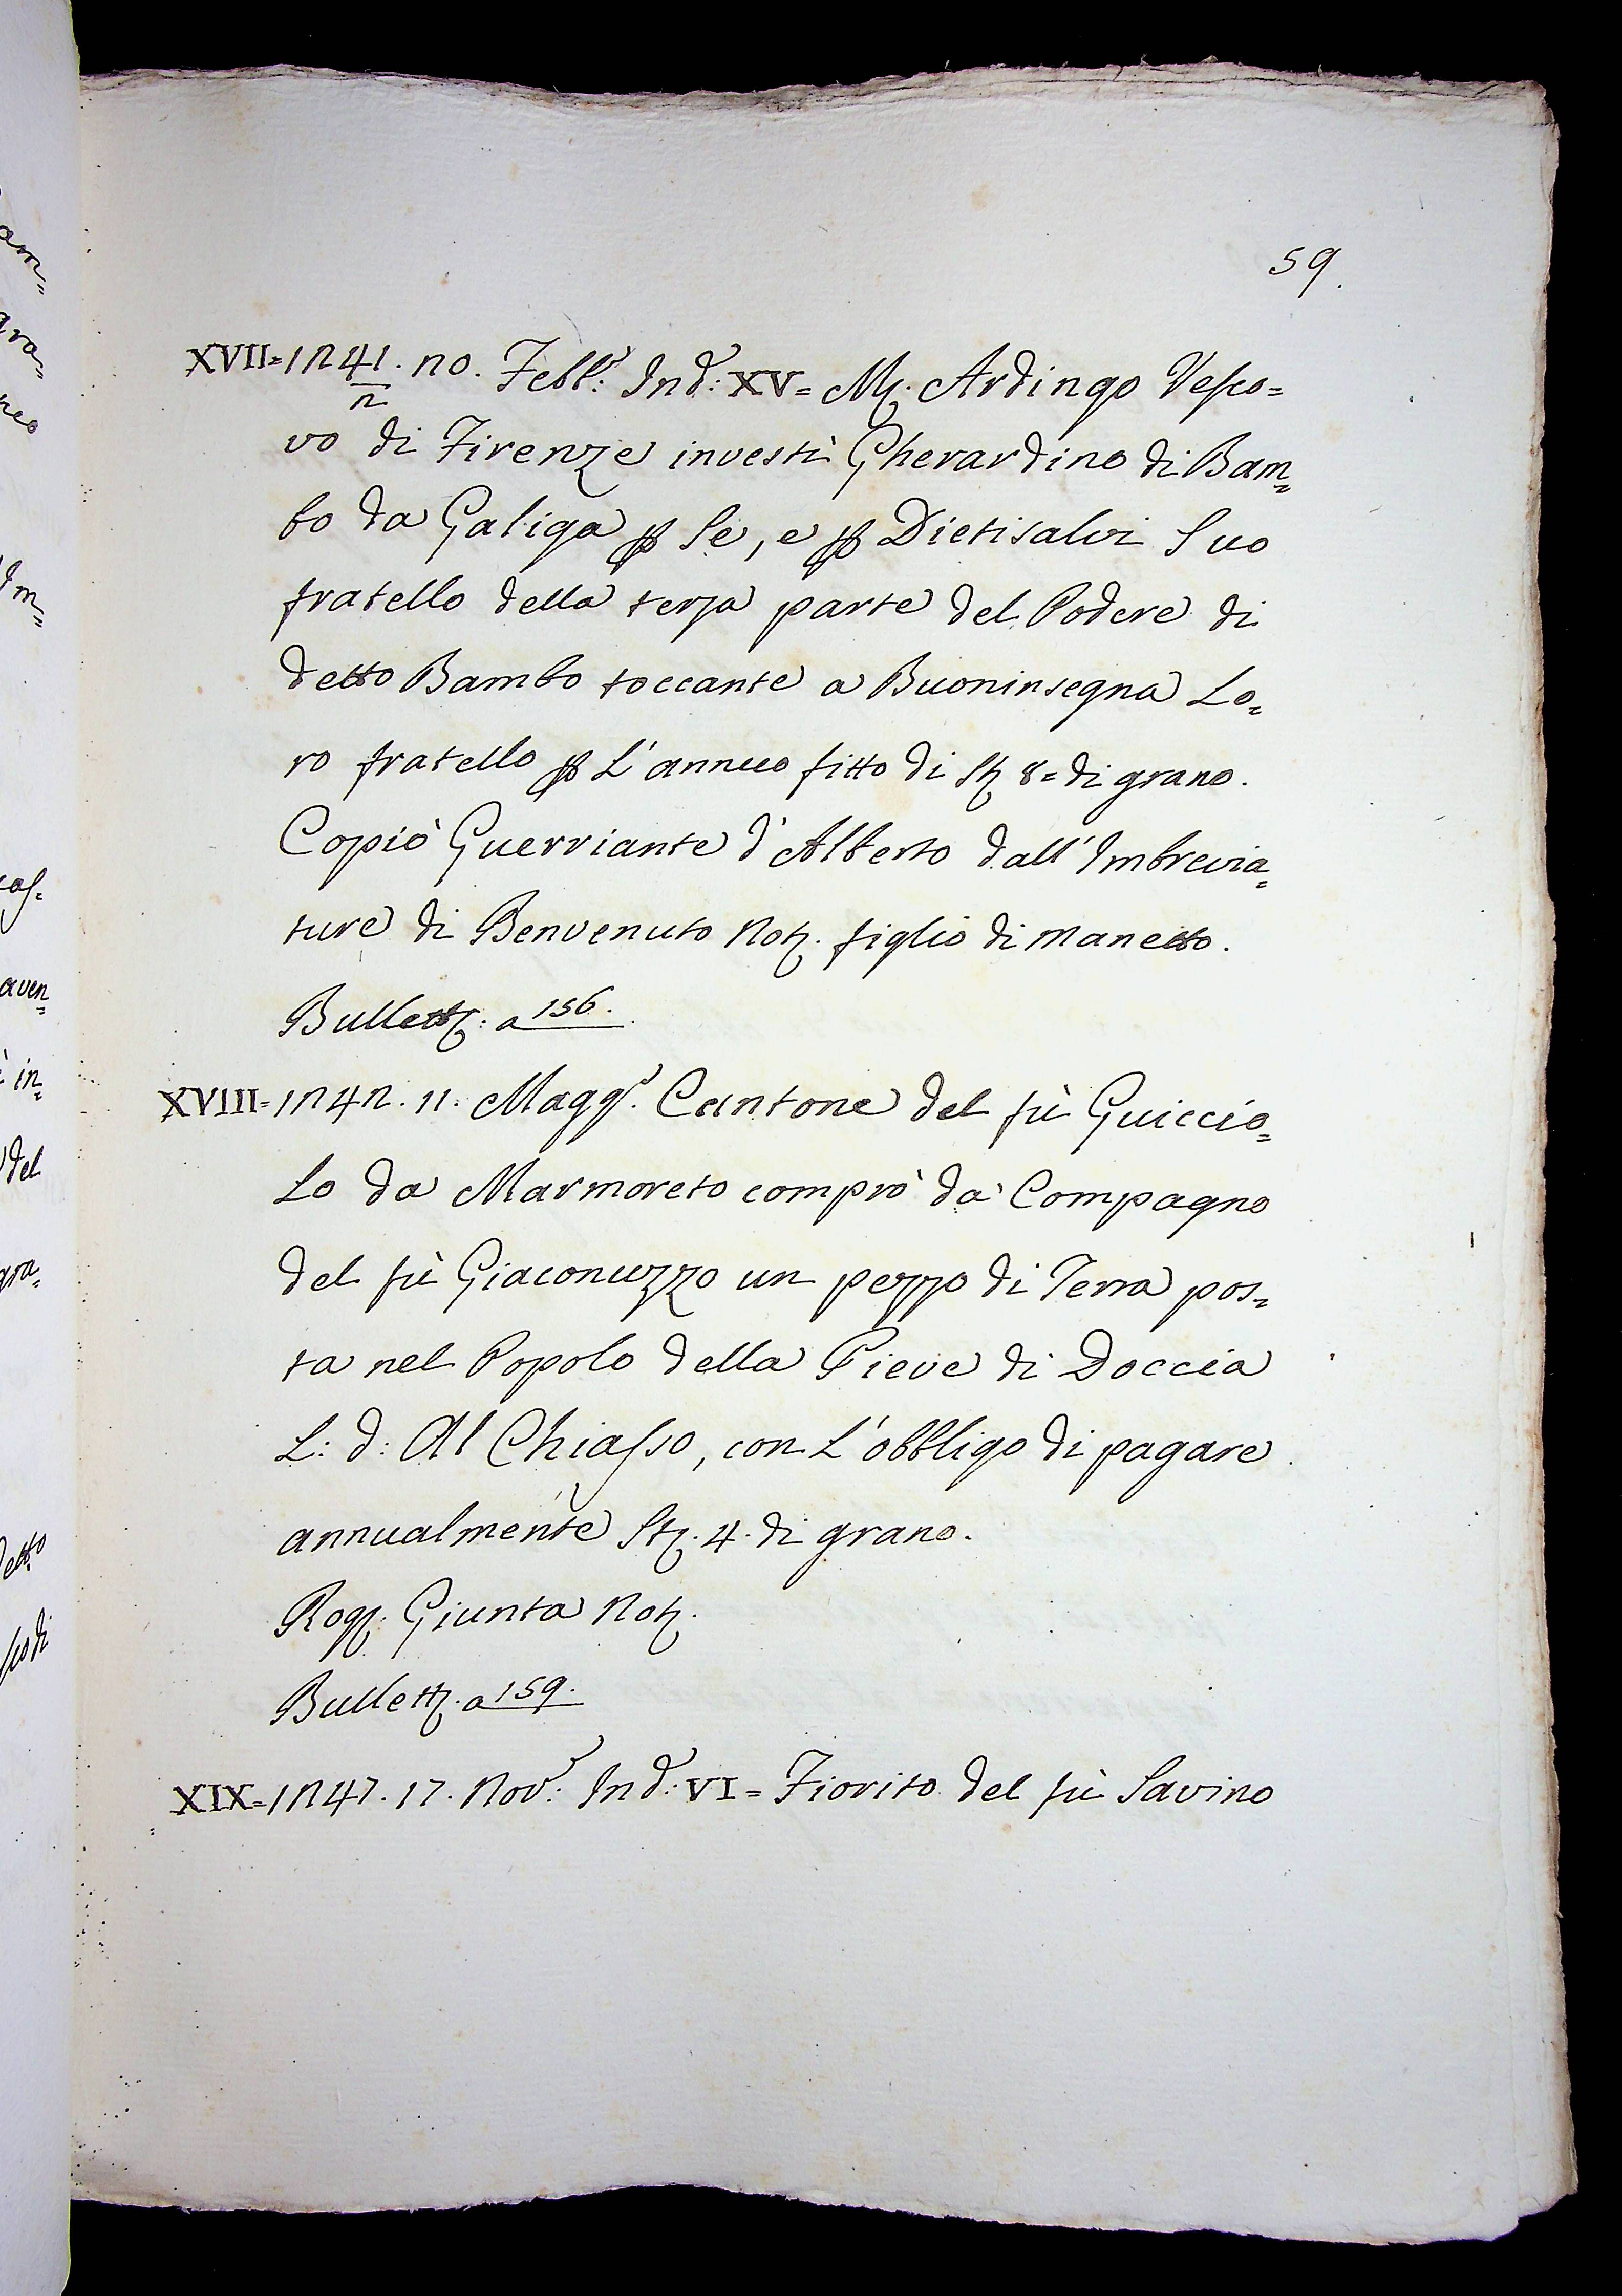 59.
XVII=1241/2. 20. Febb.º: Ind.e: XV= M. Ardingo Vesco=
vo di Firenze investì Gherardino di Bam=
bo da Galiga p Se, e p Dietisalvi Suo
fratello della terza parte del Podere di
detto Bambo toccante a Buoninsegna Lo=
ro fratello p L'annuo fitto di St 8= di grano.
Copiò Guerriante d'Alberto dall'Imbrevia=
ture di Benvenuto Not. figlio di Manetto.
Bullett: a 156.
XVIII=1242. 11. Magg.º Cantone del fù Guiccio=
lo da Marmoreto comprò da Compagno
del fù Giaconuzzo un pezzo di Terra pos=
ta nel Popolo della Pieve di Doccia
L: d: Al Chiasso, con L'obbligo di pagare
annualmente St. 4. di grano.
Rog: Giunta Not.
Bullett. a 159.
XIX=1247. 17. Nov.e: Ind.e: VI= Fiorito del fù Savino